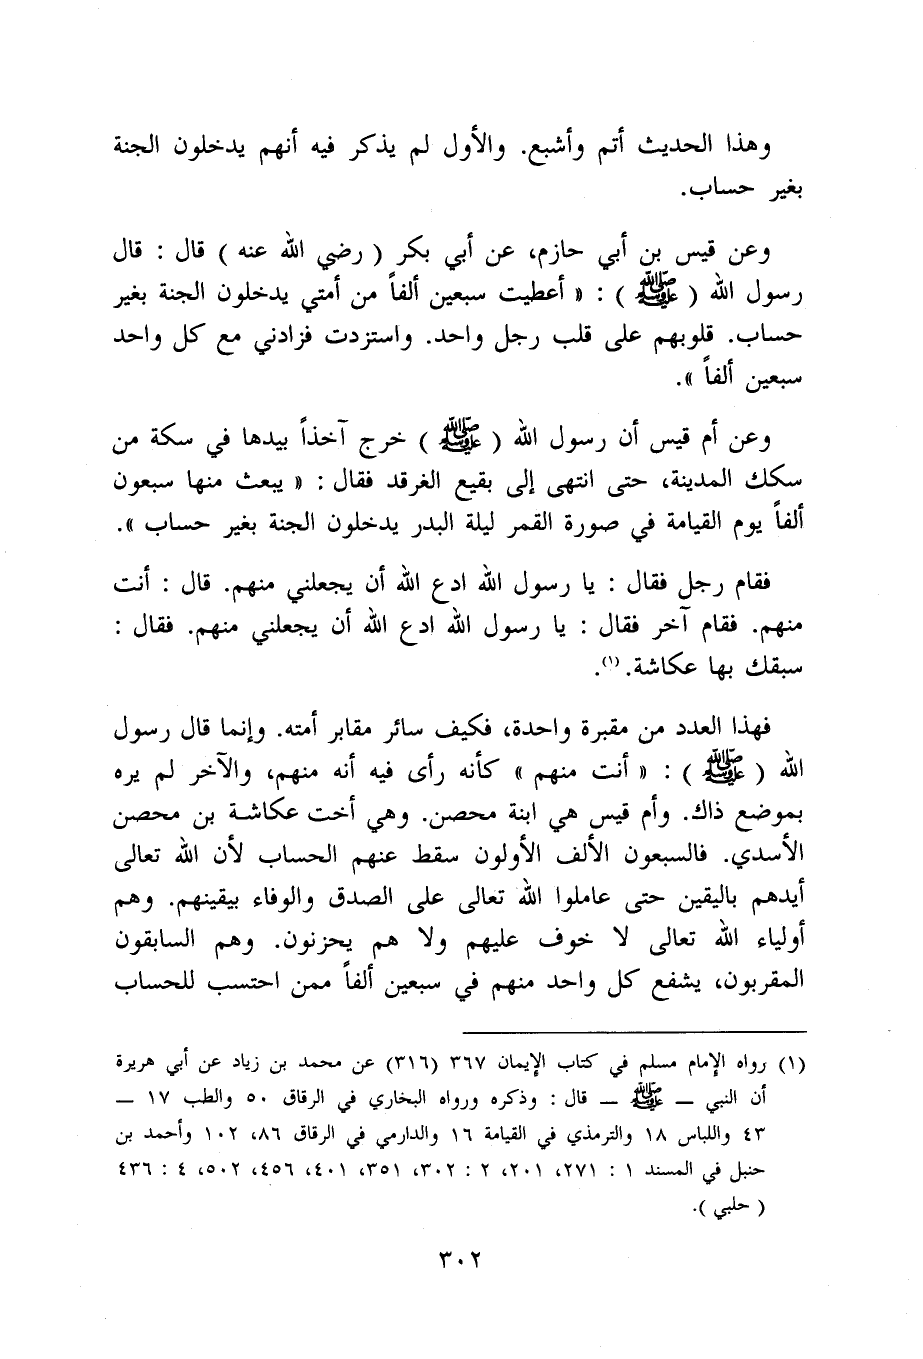 وهذا الحديث أتم وأشبع. والأول لم يذكر فيه أنهم يدخلون الجنة
بغير حساب.
وعن قيس بن أبي حازم، عن أبي بكر ( رضي الله عنه ) قال : قال
رسول الله ( ﷺ ) : « أعطيت سبعين ألفاً من أمتي يدخلون الجنة بغير
حساب. قلوبهم على قلب رجل واحد. واستزدت فزادني مع كل واحد
سبعين ألفاً ».
وعن أم قيس أن رسول الله ( ﷺ ) خرج آخذاً بيدها في سكة من
سكك المدينة، حتى انتهى إلى بقيع الغرقد فقال : « يبعث منها سبعون
ألفاً يوم القيامة في صورة القمر ليلة البدر يدخلون الجنة بغير حساب ».
فقام رجل فقال : يا رسول الله ادع الله أن يجعلني منهم. قال : أنت
منهم. فقام آخر فقال : يا رسول الله ادع الله أن يجعلني منهم. فقال :
سبقك بها عكاشة.(١).
فهذا العدد من مقبرة واحدة، فكيف سائر مقابر أمته. وإنما قال رسول
الله ( ﷺ ) : « أنت منهم » كأنه رأى فيه أنه منهم، والآخر لم يره
بموضع ذاك. وأم قيس هي ابنة محصن. وهي أخت عكاشة بن محصن
الأسدي. فالسبعون الألف الأولون سقط عنهم الحساب لأن الله تعالى
أيدهم باليقين حتى عاملوا الله تعالى على الصدق والوفاء بيقينهم. وهم
أولياء الله تعالى لا خوف عليهم ولا هم يحزنون. وهم السابقون
المقربون، يشفع كل واحد منهم في سبعين ألفاً ممن احتسب للحساب
(١) رواه الإمام مسلم في كتاب الإيمان ٣٦٧ (٣١٦) عن محمد بن زياد عن أبي هريرة
أن النبي ــ ﷺ ــ قال : وذكره ورواه البخاري في الرقاق ٥٠ والطب ١٧ ــ
٤٣ واللباس ١٨ والترمذي في القيامة ١٦ والدارمي في الرقاق ٨٦، ١٠٢ وأحمد بن
حنبل في المسند ١ : ٢٧١، ٢٠١، ٢ : ٣٠٢، ٣٥١، ٤٠١، ٤٥٦، ٥٠٢، ٤ : ٤٣٦
( حلبي ).
٣٠٢